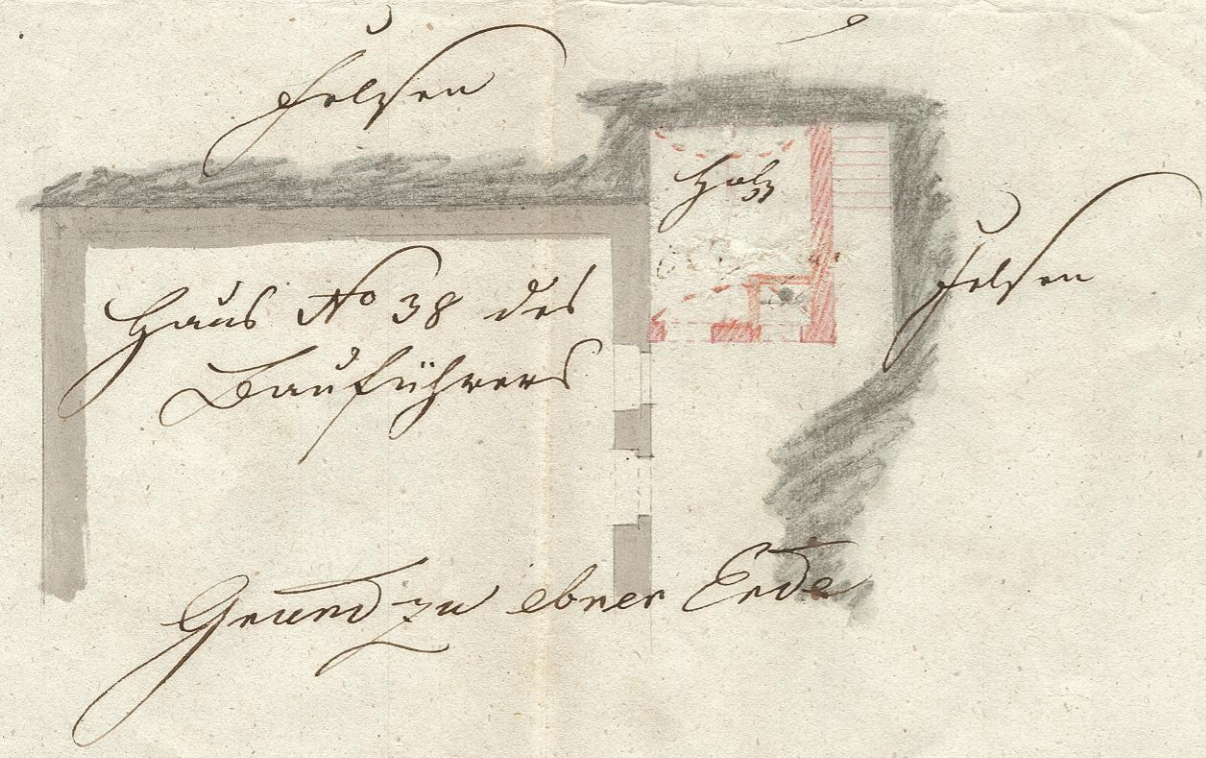 Felsen
Holz
Felsen
Haus No 38 des
Bauführers
Grund zu ebner Erde